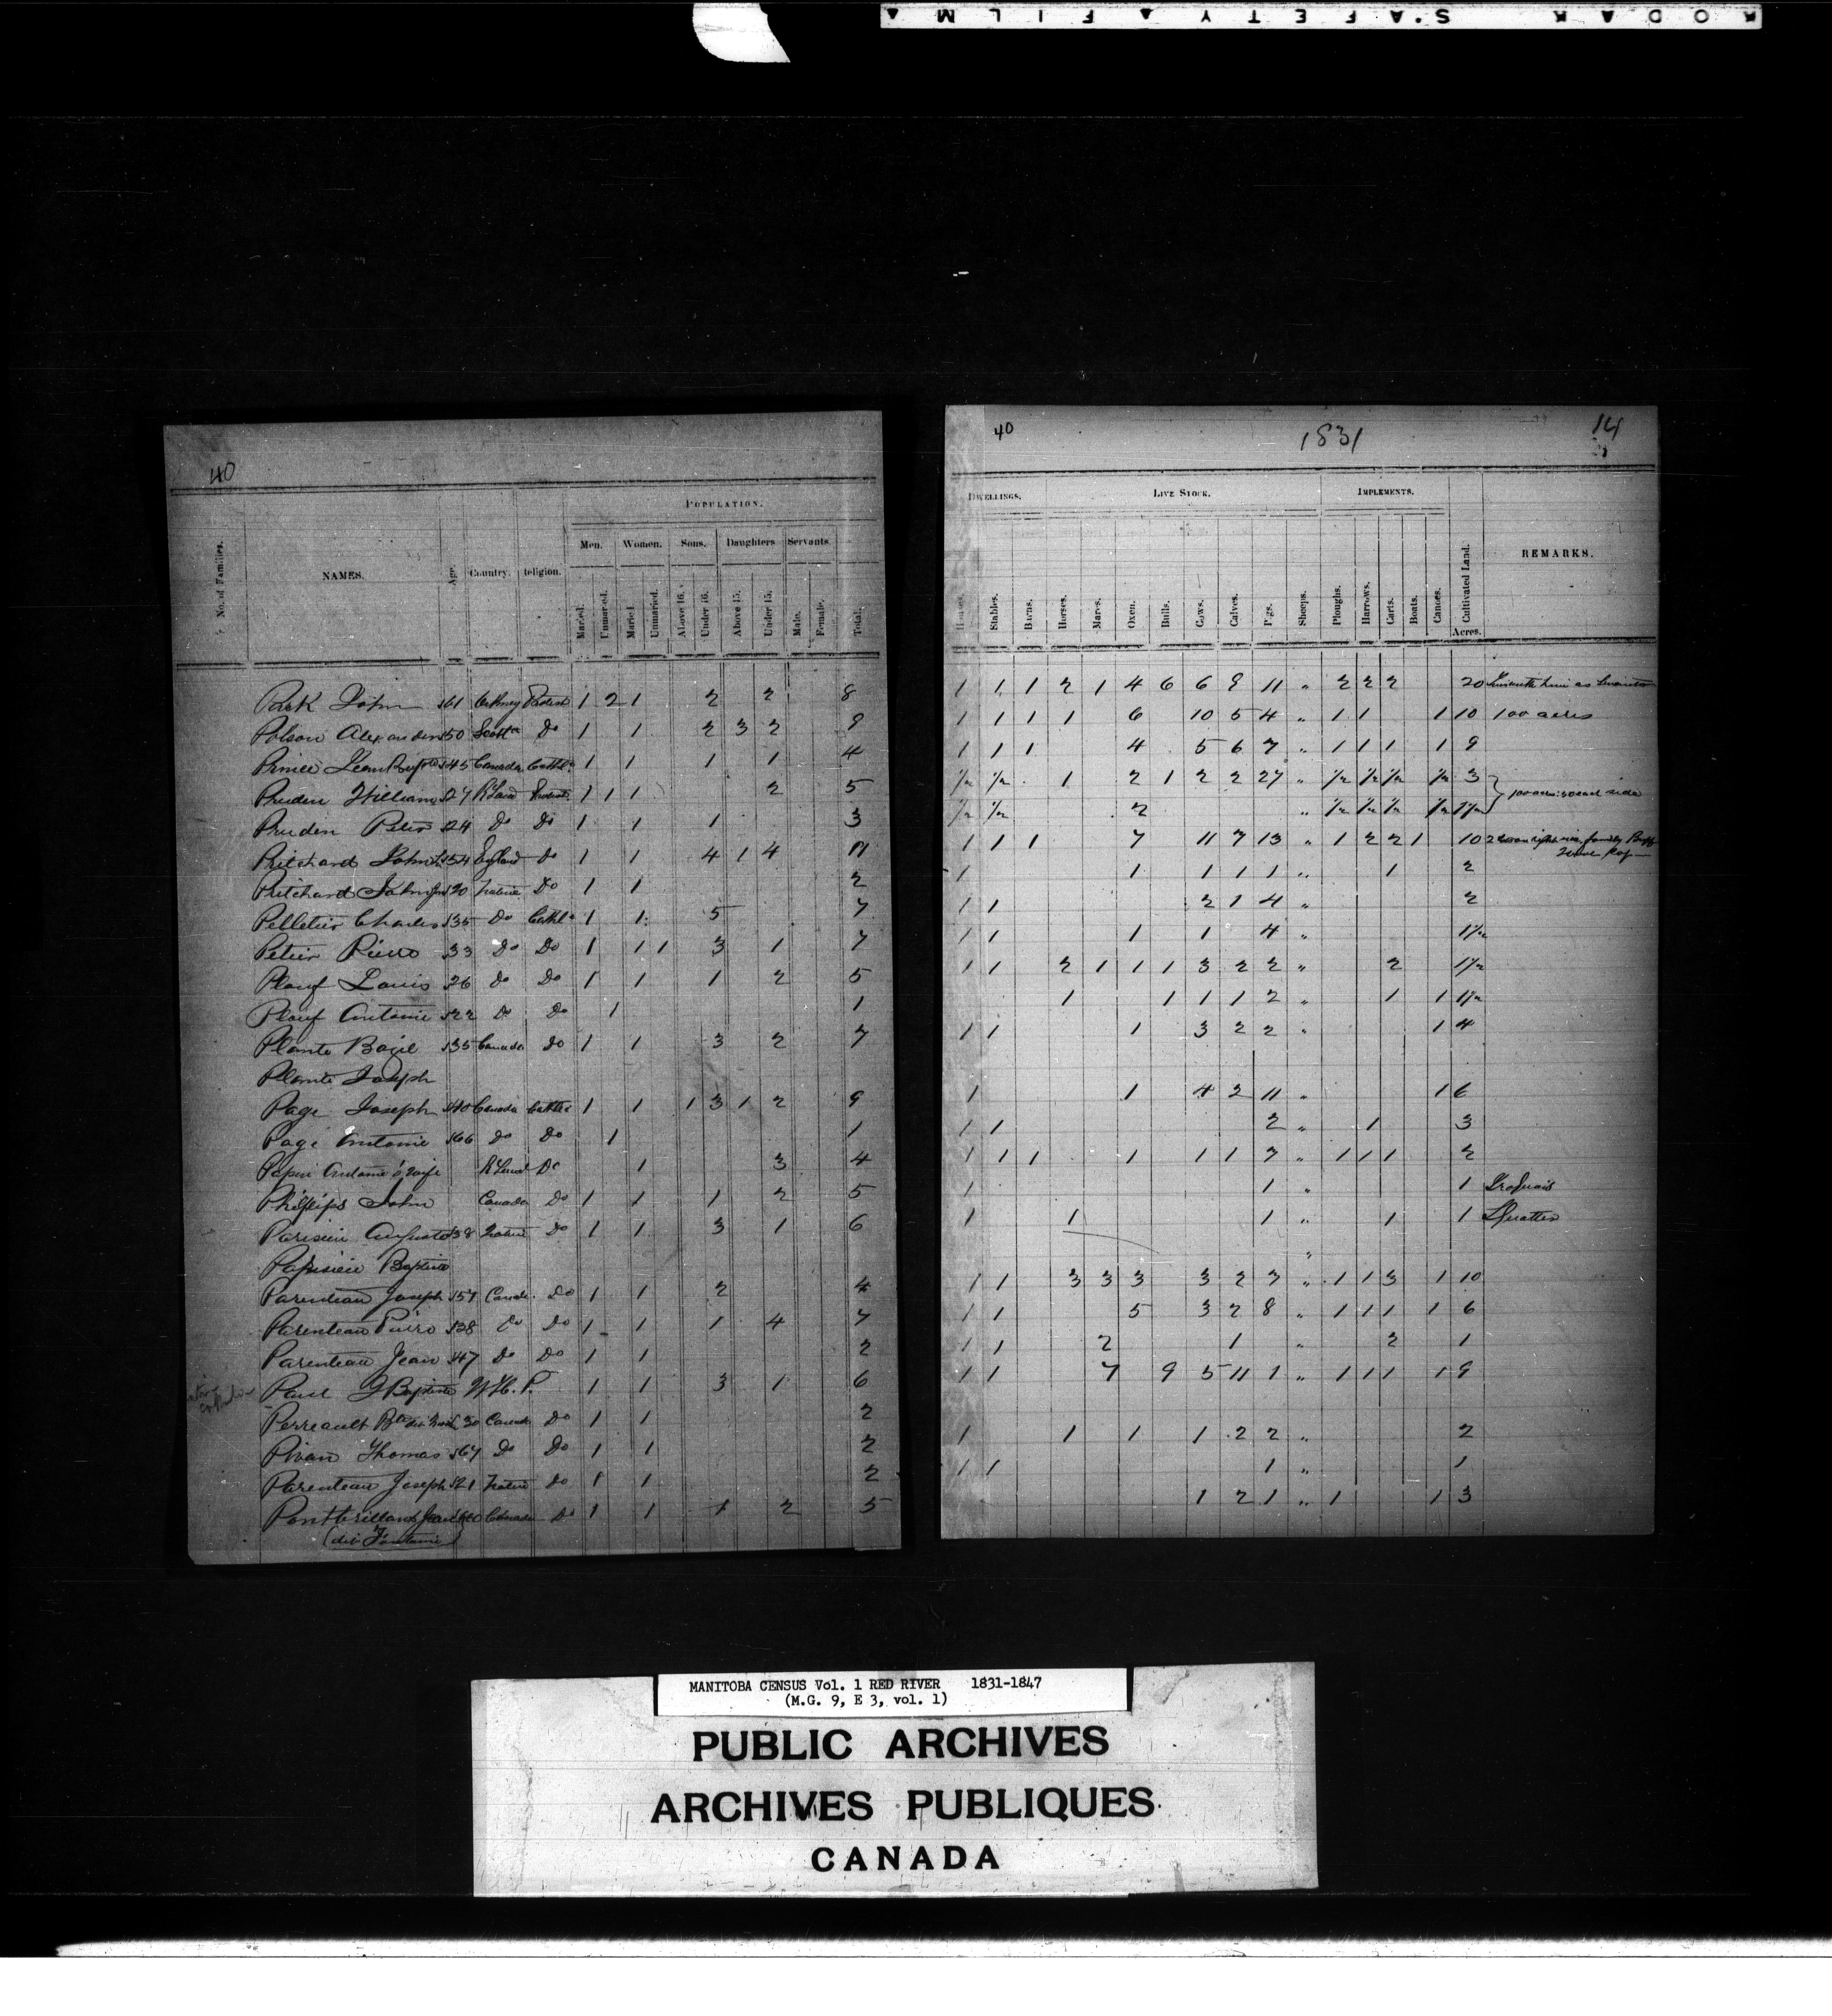 KODAK SAFETY FILM
40
POPULATION.
Men. Women. Sons. Daughters Servants
No. of Families. NAMES. Age. Country. Religion. Married. Unmarried. Married. Unmarried. Above 16. Under 16. Above 15. Under 15. Male. Female. Total.
Park John 61 Orkney Protest 1 2 1 2 2 8
Polson Alexander 50 Scotld Do 1 1 2 3 2 9
Prince Jean Bapte 45 Canada Cathlc 1 1 1 1 4
Pruden William 27 R Land Protest 1 1 1 2 5
Pruden Peter 24 Do Do 1 1 1 3
Pritchard John 54 England Do 1 1 4 1 4 11
Pritchard John Jnr 20 Native Do 1 1 2
Pelletier Charles 35 Do Cathlc 1 1 5 7
Petier Pierro 33 Do Do 1 1 1 3 1 7
Plouf Louis 26 Do Do 1 1 1 2 5
Plouf Antoine 22 Do Do 1 1
Plante Bazil 35 Canada Do 1 1 3 2 7
Plante Joseph
Page Joseph 40 Canada Cathlc 1 1 1 3 1 2 9
Page Antoine 66 Do Do 1 1
Antoine's wife R Land Do 1 3 4
Phillips John Canada Do 1 1 1 2 5
Parisien Auguste 38 Native Do 1 1 3 1 6
Parisien Baptiste
Parenteau Joseph 57 Canada Do 1 1 2 4
Parenteau Pierro 28 Do Do 1 1 1 4 7
Parenteau Jean 47 Do Do 1 1 2
Paul J Baptiste 1 1 3 1 6
Perreault Bte dit 30 Canada Do 1 1 2
Pivan Thomas 67 Do Do 1 1 2
Parenteau Joseph 21 Native Do 1 1 2
Jean Canada Do 1 1 1 2 5
(dit Fontaine)
40 1831 14
DWELLINGS. LIVE STOCK. IMPLEMENTS.
Houses. Stables. Barns. Horses. Mares. Oxen. Bulls. Cows. Calves. Pigs. Sheeps. Ploughs. Harrows. Carts. Boats. Canoes. Cultivated Land. REMARKS.
Acres.
1 1 1 2 1 4 6 6 9 11 " 2 2 2 20
1 1 1 1 6 10 5 4 " 1 1 1 10 100 acres
1 1 1 4 5 6 7 " 1 1 1 1 9
½ ½ 1 2 1 2 2 27 " ½ ½ ½ ½ 3
½ ½ 2 " ½ ½ ½ ½ 1½ } 100 acres: 50 each side
1 1 1 7 11 7 13 " 1 2 2 1 10
1 1 1 1 1 " 1 2
1 1 2 1 4 " 2
1 1 1 1 4 " 1½
1 1 2 1 1 1 3 2 2 " 2 1½
1 1 1 1 2 " 1 1 1½
1 1 1 3 2 2 " 1 4
1 1 4 2 11 " 1 6
1 1 2 " 1 3
1 1 1 1 1 1 7 " 1 1 1 2
1 1 " 1 Iroquois
1 1 1 " 1 1 Squatter
"
1 1 3 3 3 3 2 7 " 1 1 3 1 10
1 1 5 3 2 8 " 1 1 1 1 6
1 1 2 1 " 2 1
1 1 7 9 5 11 1 " 1 1 1 1 9
1 1 1 1 2 2 " 2
1 1 1 " 1
1 2 1 " 1 1 3
MANITOBA CENSUS Vol. 1 RED RIVER 1831-1847
(M.G. 9, E 3, vol. 1)
PUBLIC ARCHIVES
ARCHIVES PUBLIQUES
CANADA